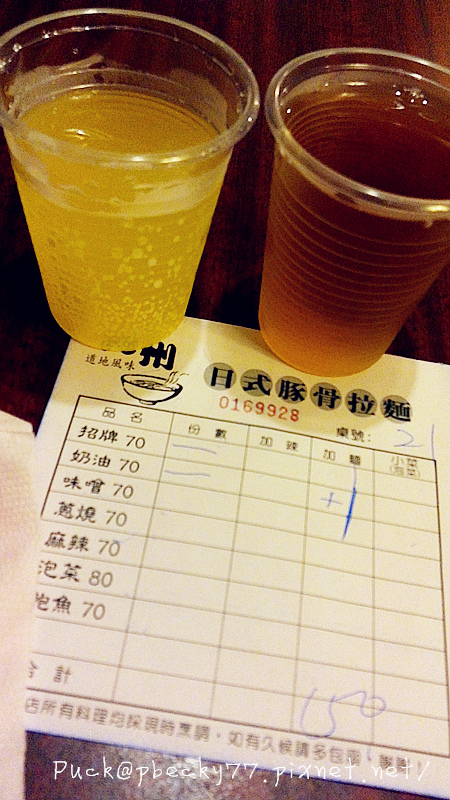 州
道地風味
日式豚骨拉麵
0169928
桌號: 21
品名 份數 加辣 加麵 小菜
招牌 70 一
奶油 70 一
味噌 70 +1
蔥燒 70
麻辣 70
泡菜 80
鮑魚 70
合計 150
店所有料理均採現時烹調，如有久候請多包涵，謝謝!
Puck@pbecky77.pixnet.net/